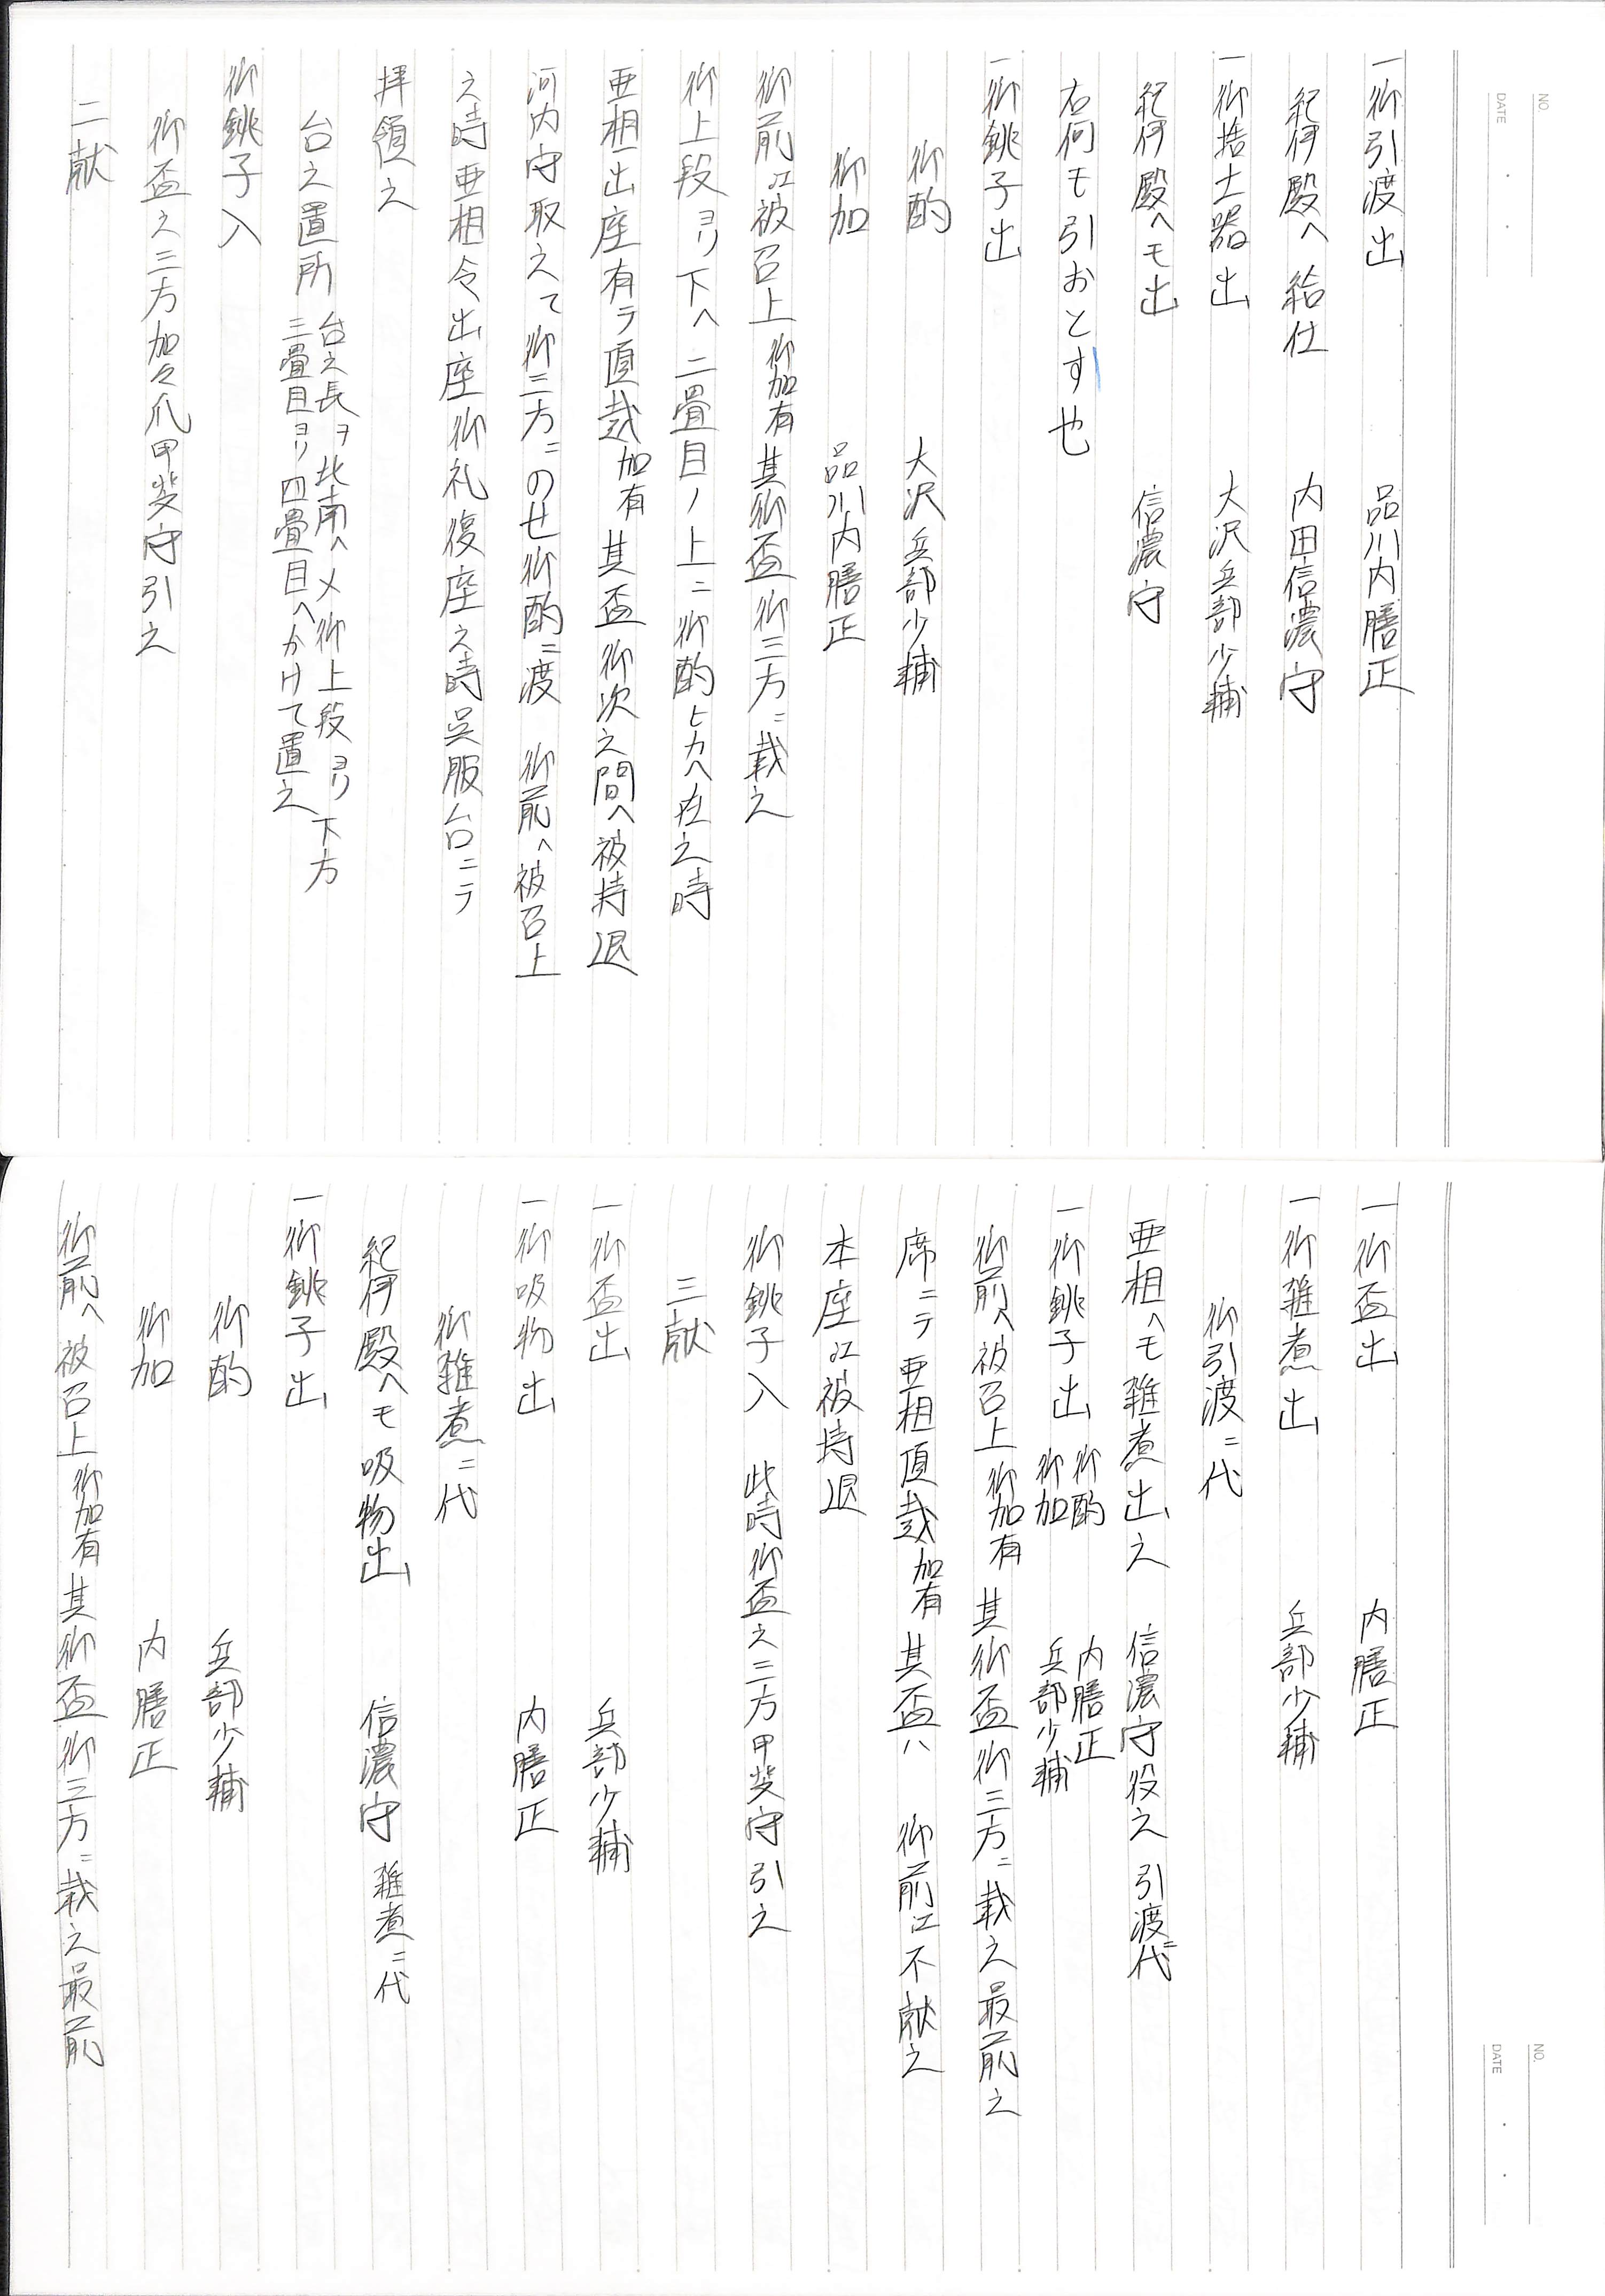 NO.
DATE
一御引渡出　品川内膳正
紀伊殿へ給仕　内田信濃守
一御捨土器出　大沢兵部少輔
紀伊殿ヘモ出　信濃守
右何モ引おとす也
一御銚子出
御酌　大沢兵部少輔
御加　品川内膳正
御前江被召上御加有其御盃御三方ニ載之
御上段ヨリ下ヘ二畳目ノ上ニ御酌ヒカヘ在之時
亜相出座有テ頂戴加有其盃御次之間ヘ被持退
河内守取之て御三方ニのせ御酌ニ渡　御前ヘ被召上
之時亜相令出座御礼復座之時呉服台ニテ
拝領之
台之置所　台之長ヲ北南ヘメ御上段ヨリ下方
三畳目ヨリ四畳目ヘかけて置之
御銚子入
御盃之三方加々爪甲斐守引之
二献
NO.
DATE
一御盃出　内膳正
一御雑煮出　兵部少輔
御引渡ニ代
亜相ヘモ雑煮出之　信濃守役之　引渡ニ代
一御銚子出　御酌　内膳正
御加　兵部少輔
御前ヘ被召上御加有其御盃御三方ニ載之最前之
席ニテ亜相頂戴加有其盃ハ　御前江不献之
本座江被持退
御銚子入　此時御盃之三方甲斐守引之
三献
一御盃出　兵部少輔
一御吸物出　内膳正
御雑煮ニ代
紀伊殿ヘモ吸物出　信濃守　雑煮ニ代
一御銚子出
御酌　兵部少輔
御加　内膳正
御前ヘ被召上御加有其御盃御三方ニ載之最前